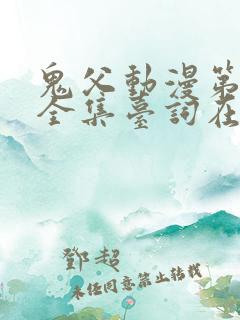 鬼父動漫第
全集臺詞在
鄧超
未任同意禁止转载